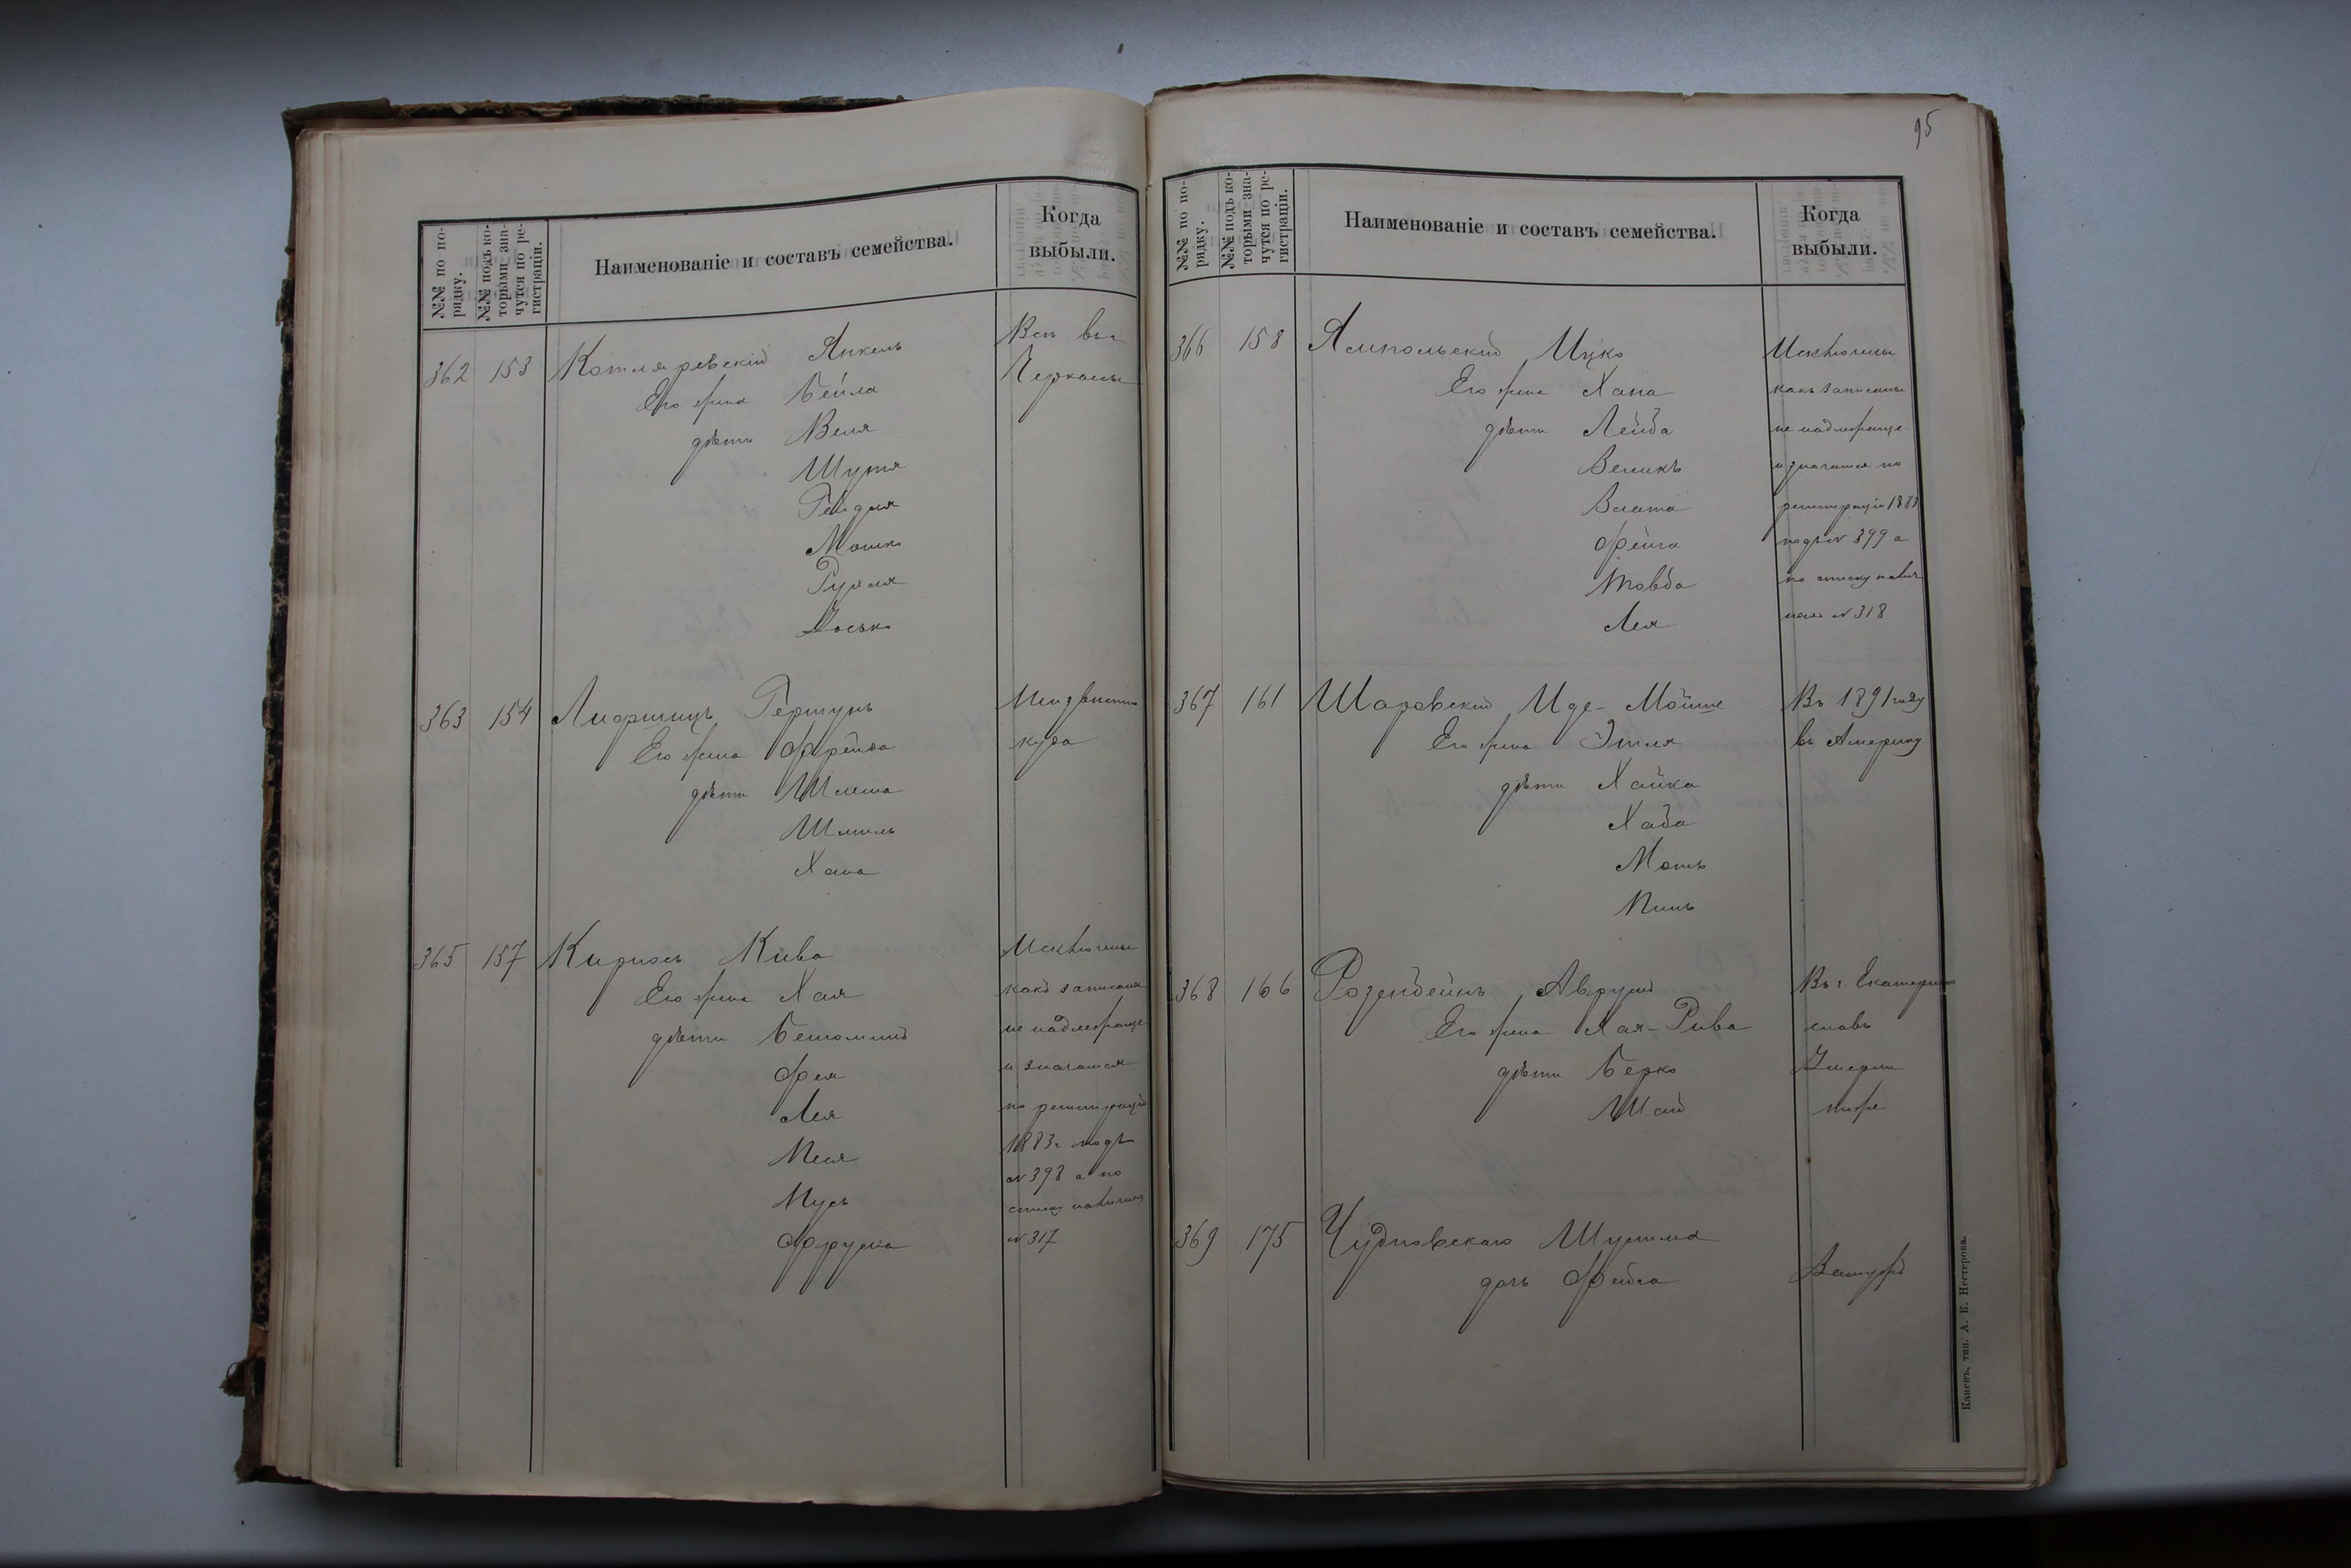 №№ по по-
рядку.
№№ подъ ко-
торыми зна-
чутся по ре-
гистраціи.
Наименованіе и составъ семейства.
Когда
выбыли.
362 153 Котляревскій Янкель
Его жена Бейла
дѣти Веля
Шутя
Гендля
Мошко
Рухля
Іосько
Всѣ въ г.
Черкассы
363 154 Лифшицъ Гершунъ
Его жена Фрейда
дѣти Шлема
Шмиль
Хана
Неизвѣстно
куда
365 157 Кива
Его жена Хая
дѣти
Фея
Лея
Песя
Мусь
Фрума
Исключены
какъ записаны
не надлежаще
и значатся
по регистраціи
1883 г. подъ
№ 398 а по
списку наличныхъ
№ 317
95
№№ по по-
рядку.
№№ подъ ко-
торыми зна-
чутся по ре-
гистраціи.
Наименованіе и составъ семейства.
Когда
выбыли.
366 158 Ямпольскій Ицко
Его жена Хана
дѣти Лейба
Велико
Злата
Фейга
Товба
Лея
Исключены
какъ записаны
не надлежаще
и значатся по
регистраціи 1883
подъ № 399 а
по списку налич
ныхъ № 318
367 161 Шаровскій Иде-Мойше
Его жена Этля
дѣти Хайка
Хава
Моть
Пинь
Въ 1891 году
въ Америку
368 166 Розенбейнъ Аврумъ
Его жена Хая-Рива
дѣти Берко
Шай
Въ г. Екатерино
славъ
Умерли
тоже
369 175 Чудновскаго Шулима
дочь Фейга
Замужъ
Каневъ, тип. А. К. Нестерова.